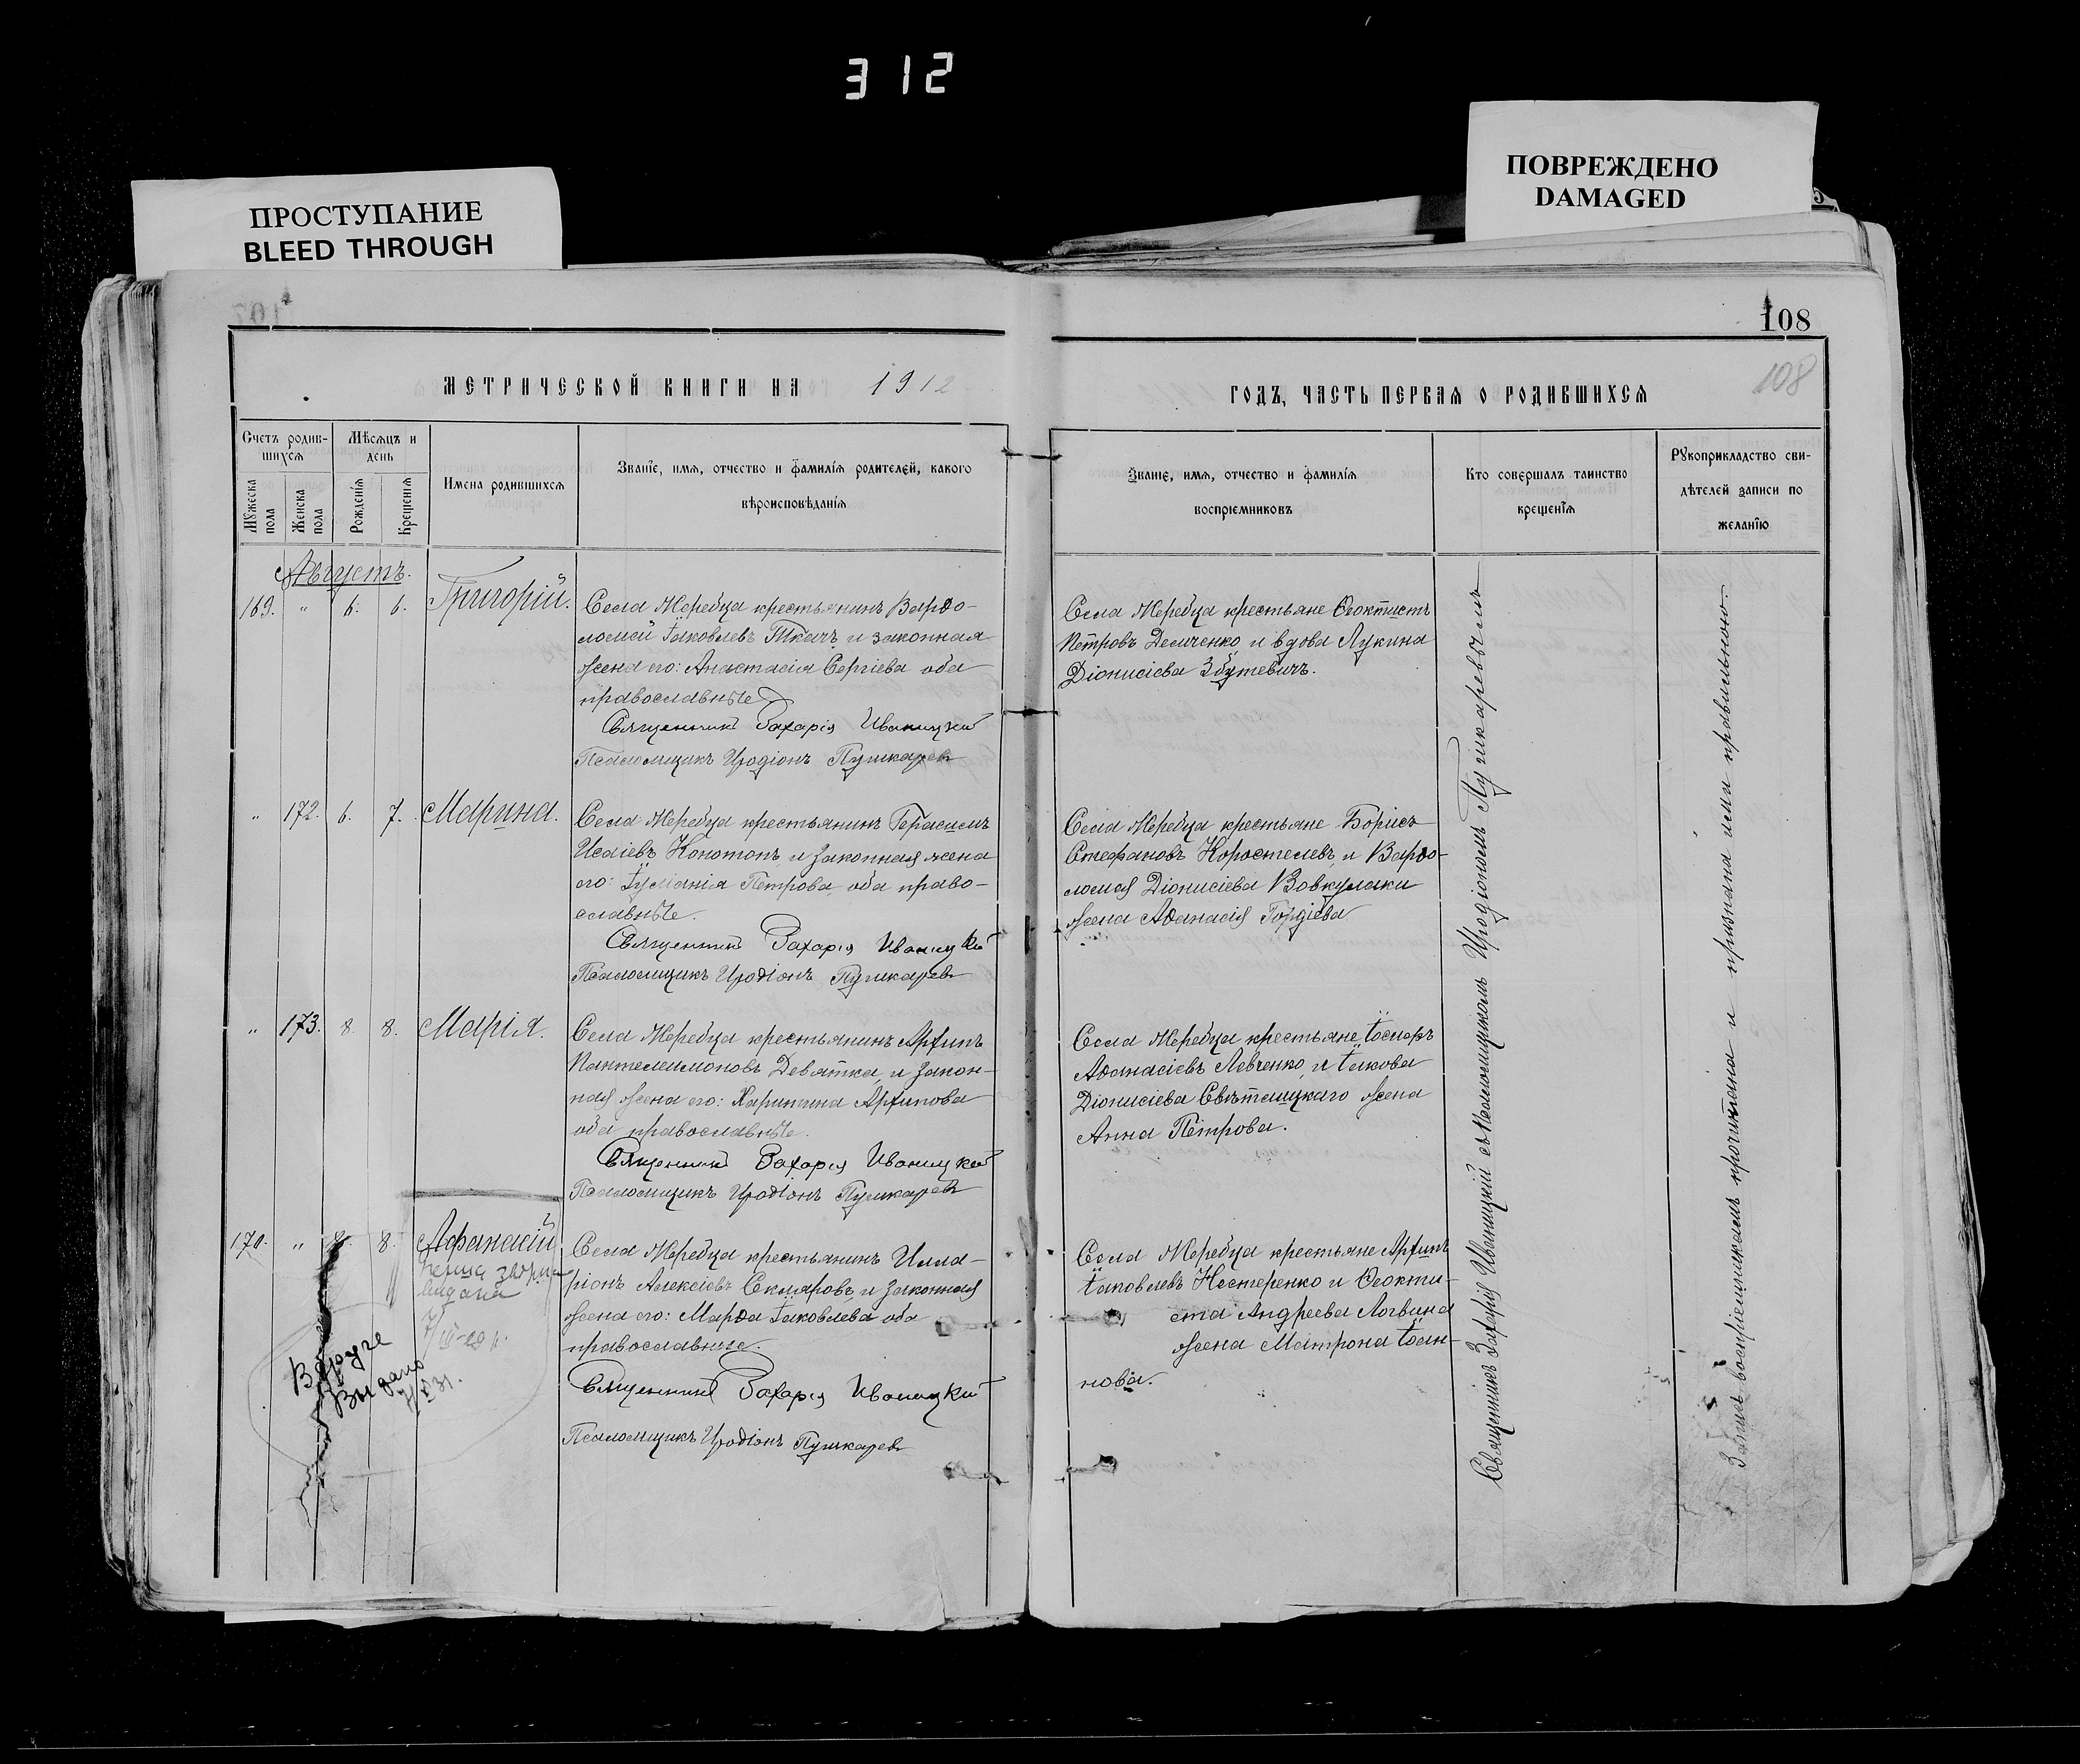 312
ПРОСТУПАНИЕ
BLEED THROUGH
ПОВРЕЖДЕНО
DAMAGED
108
108
МЕТРИЧЕСКОЙ КНИГИ НА 1912
ГОДЪ, ЧАСТЬ ПЕРВАЯ О РОДИВШИХСЯ
Счетъ родив-
шихся
Мѣсяцъ и
день
Мужеска
пола
Женска
пола
Рожденія
Крещенія
Имена родившихся
Званіе, имя, отчество и фамилія родителей, какого
вѣроисповѣданія
Званіе, имя, отчество и фамилія
воспріемниковъ
Кто совершалъ таинство
крещенія
Рукоприкладство сви-
дѣтелей записи по
желанію
Августъ.
169. " 6. 6. Григорій.
Села Жеребца крестьянинъ Варѳо-
ломей Іаковлевъ Ткачъ и законная
жена его: Анастасія Сергіева оба
православные
Священникъ Захарія Иваницкій
Псаломщикъ Иродіонъ Пушкаревъ
Села Жеребца крестьяне Ѳеоктистъ
Петровъ Демченко, и вдова Лукина
Діонисіева
" 172. 6. 7. Марина.
Села Жеребца крестьянинъ Герасимъ
Исаіевъ Конотопъ, и законная жена
его: Іуліанія Петрова, оба право-
славные.
Священникъ Захарія Иваницкій
Псаломщикъ Иродіонъ Пушкаревъ
Села Жеребца крестьяне Борисъ
Стефановъ Коростелевъ, и Варѳо-
ломея Діонисіева Вовкулаки
жена Аѳанасія Гордіева
" 173. 8. 8. Марія.
Села Жеребца крестьянинъ Архипъ
Пантелеимоновъ Девятка, и закон-
ная жена его: Харитина Архипова
оба православные.
Священникъ Захарія Иваницкій
Псаломщикъ Иродіонъ Пушкаревъ
Села Жеребца крестьяне Іосифъ
Аѳанасіевъ Левченко, и Іакова
Діонисіева Свѣтлицкаго жена
Анна Петрова.
170. " 8. 8. Афанасій
Села Жеребца крестьянинъ Илла-
ріонъ Алексіевъ Скляровъ, и законная
жена его: Марѳа Іаковлева оба
православные.
Священникъ Захарія Иваницкій
Псаломщикъ Иродіонъ Пушкаревъ
Села Жеребца крестьяне Архипъ
Іаковлевъ Нестеренко и Ѳеокти-
ста Андреева Логвина
жена Матрона Іоан-
нова.
видана
Вдруге
Выдано
Священникъ Захарія Иваницкій съ псаломщикомъ Иродіономъ Пушкаревымъ
Запись воспріемниками прочитана и признана ими правильною.